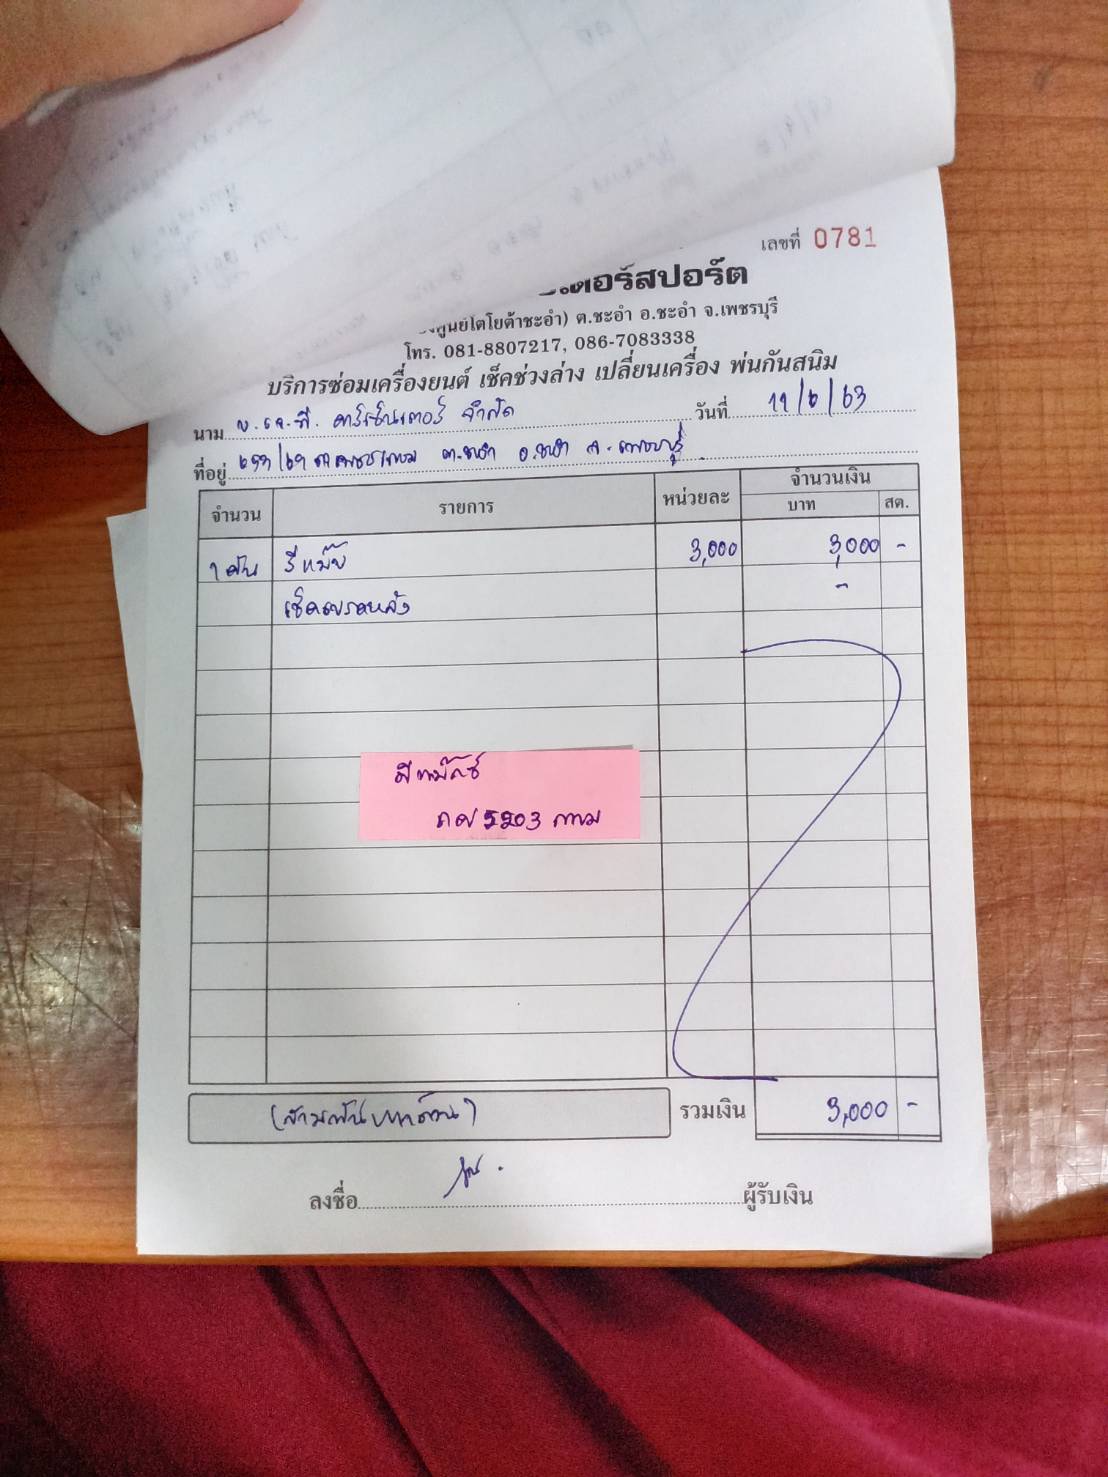 เลขที่ 0781
เตอร์สปอร์ต
ศูนย์โตโยต้าชะอำ) ต.ชะอำ อ.ชะอำ จ.เพชรบุรี
โทร. 081-8807217, 086-7083338
บริการซ่อมเครื่องยนต์ เช็คช่วงล่าง เปลี่ยนเครื่อง พ่นกันสนิม
นาม บ.เจ.พี. คาร์เซ็นเตอร์ จำกัด วันที่ 11/6/63
ที่อยู่ ถ.เพชรเกษม ต.ชะอำ อ.ชะอำ จ.เพชรบุรี
จำนวน รายการ หน่วยละ จำนวนเงิน
บาท สต.
1 คัน 3,000 3,000 -
เช็คเบรคหลัง -
ดีแม็กซ์
5203 กทม
(สามพันบาทถ้วน) รวมเงิน 3,000 -
ลงชื่อ ผู้รับเงิน